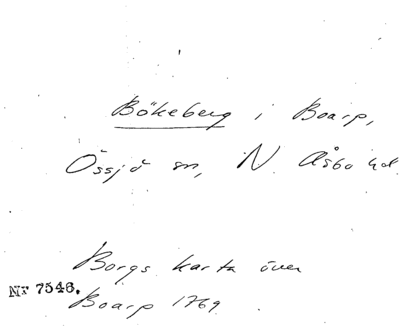 Bökeberg i Boarp,
Össjö sn, N. Åsbo hd.
Borgs karta över
Boarp 1769.
Nr 7546.